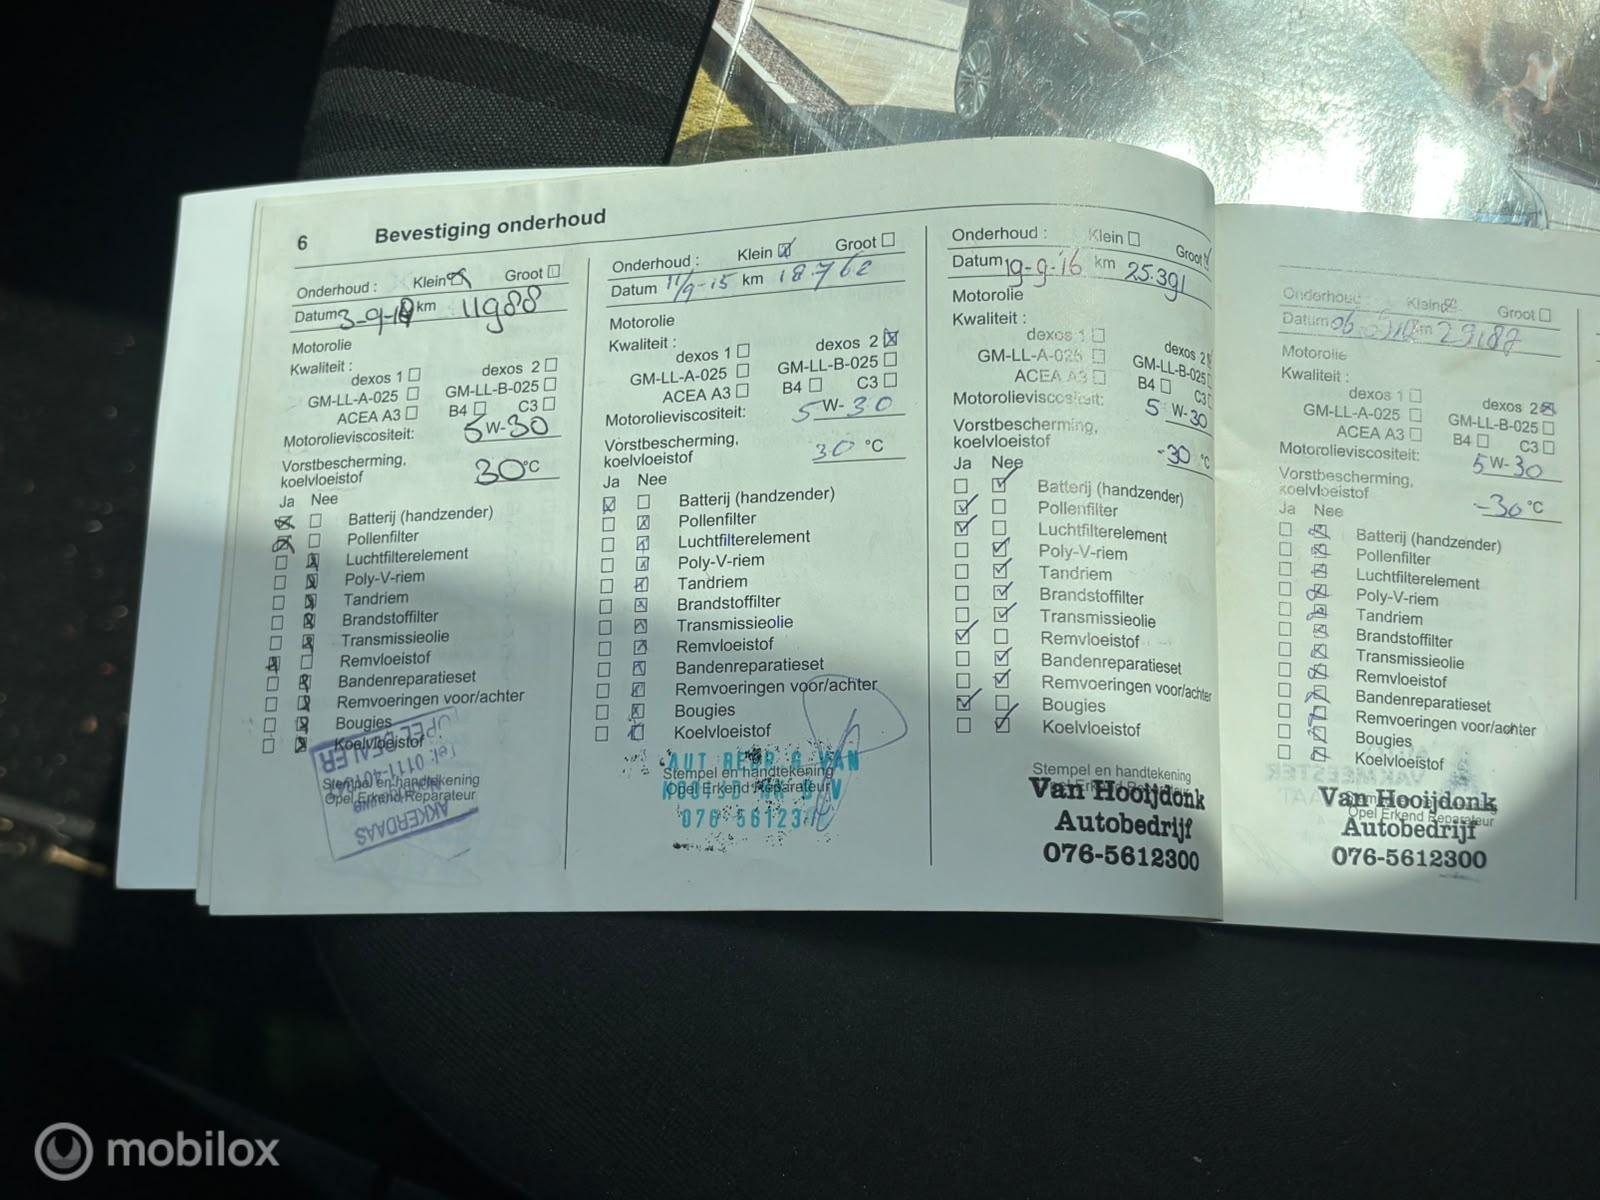 6 Bevestiging onderhoud
Onderhoud : Klein Groot
Datum 3-9- km 11988
Motorolie
Kwaliteit :
dexos 1 dexos 2
GM-LL-A-025 GM-LL-B-025
ACEA A3 B4 C3
Motorolieviscositeit: 5 W- 30
Vorstbescherming,
koelvloeistof 30 °C
Ja Nee
Batterij (handzender)
Pollenfilter
Luchtfilterelement
Poly-V-riem
Tandriem
Brandstoffilter
Transmissieolie
Remvloeistof
Bandenreparatieset
Remvoeringen voor/achter
Bougies
Koelvloeistof
Stempel en handtekening
Opel Erkend Reparateur
OPEL DEALER
AKKERDAAS
Onderhoud : Klein Groot
Datum 11/9-15 km 18.762
Motorolie
Kwaliteit :
dexos 1 dexos 2
GM-LL-A-025 GM-LL-B-025
ACEA A3 B4 C3
Motorolieviscositeit: 5 W- 30
Vorstbescherming,
koelvloeistof 30 °C
Ja Nee
Batterij (handzender)
Pollenfilter
Luchtfilterelement
Poly-V-riem
Tandriem
Brandstoffilter
Transmissieolie
Remvloeistof
Bandenreparatieset
Remvoeringen voor/achter
Bougies
Koelvloeistof
Stempel en handtekening
Opel Erkend Reparateur
VAN
076
Onderhoud : Klein Groot
Datum 19-9-'16 km 25.391
Motorolie
Kwaliteit :
dexos 1 dexos 2
GM-LL-A-025 GM-LL-B-025
ACEA A3 B4 C3
Motorolieviscositeit: 5 W-30
Vorstbescherming,
koelvloeistof -30 °C
Ja Nee
Batterij (handzender)
Pollenfilter
Luchtfilterelement
Poly-V-riem
Tandriem
Brandstoffilter
Transmissieolie
Remvloeistof
Bandenreparatieset
Remvoeringen voor/achter
Bougies
Koelvloeistof
Stempel en handtekening
Van Hooijdonk
Autobedrijf
076-5612300
Onderhoud : Klein Groot
Datum 06 km 29187
Motorolie
Kwaliteit :
dexos 1 dexos 2
GM-LL-A-025 GM-LL-B-025
ACEA A3 B4 C3
Motorolieviscositeit: 5 W-30
Vorstbescherming,
koelvloeistof -30 °C
Ja Nee
Batterij (handzender)
Pollenfilter
Luchtfilterelement
Poly-V-riem
Tandriem
Brandstoffilter
Transmissieolie
Remvloeistof
Bandenreparatieset
Remvoeringen voor/achter
Bougies
Koelvloeistof
Opel Erkend Reparateur
Van Hooijdonk
Autobedrijf
076-5612300
mobilox